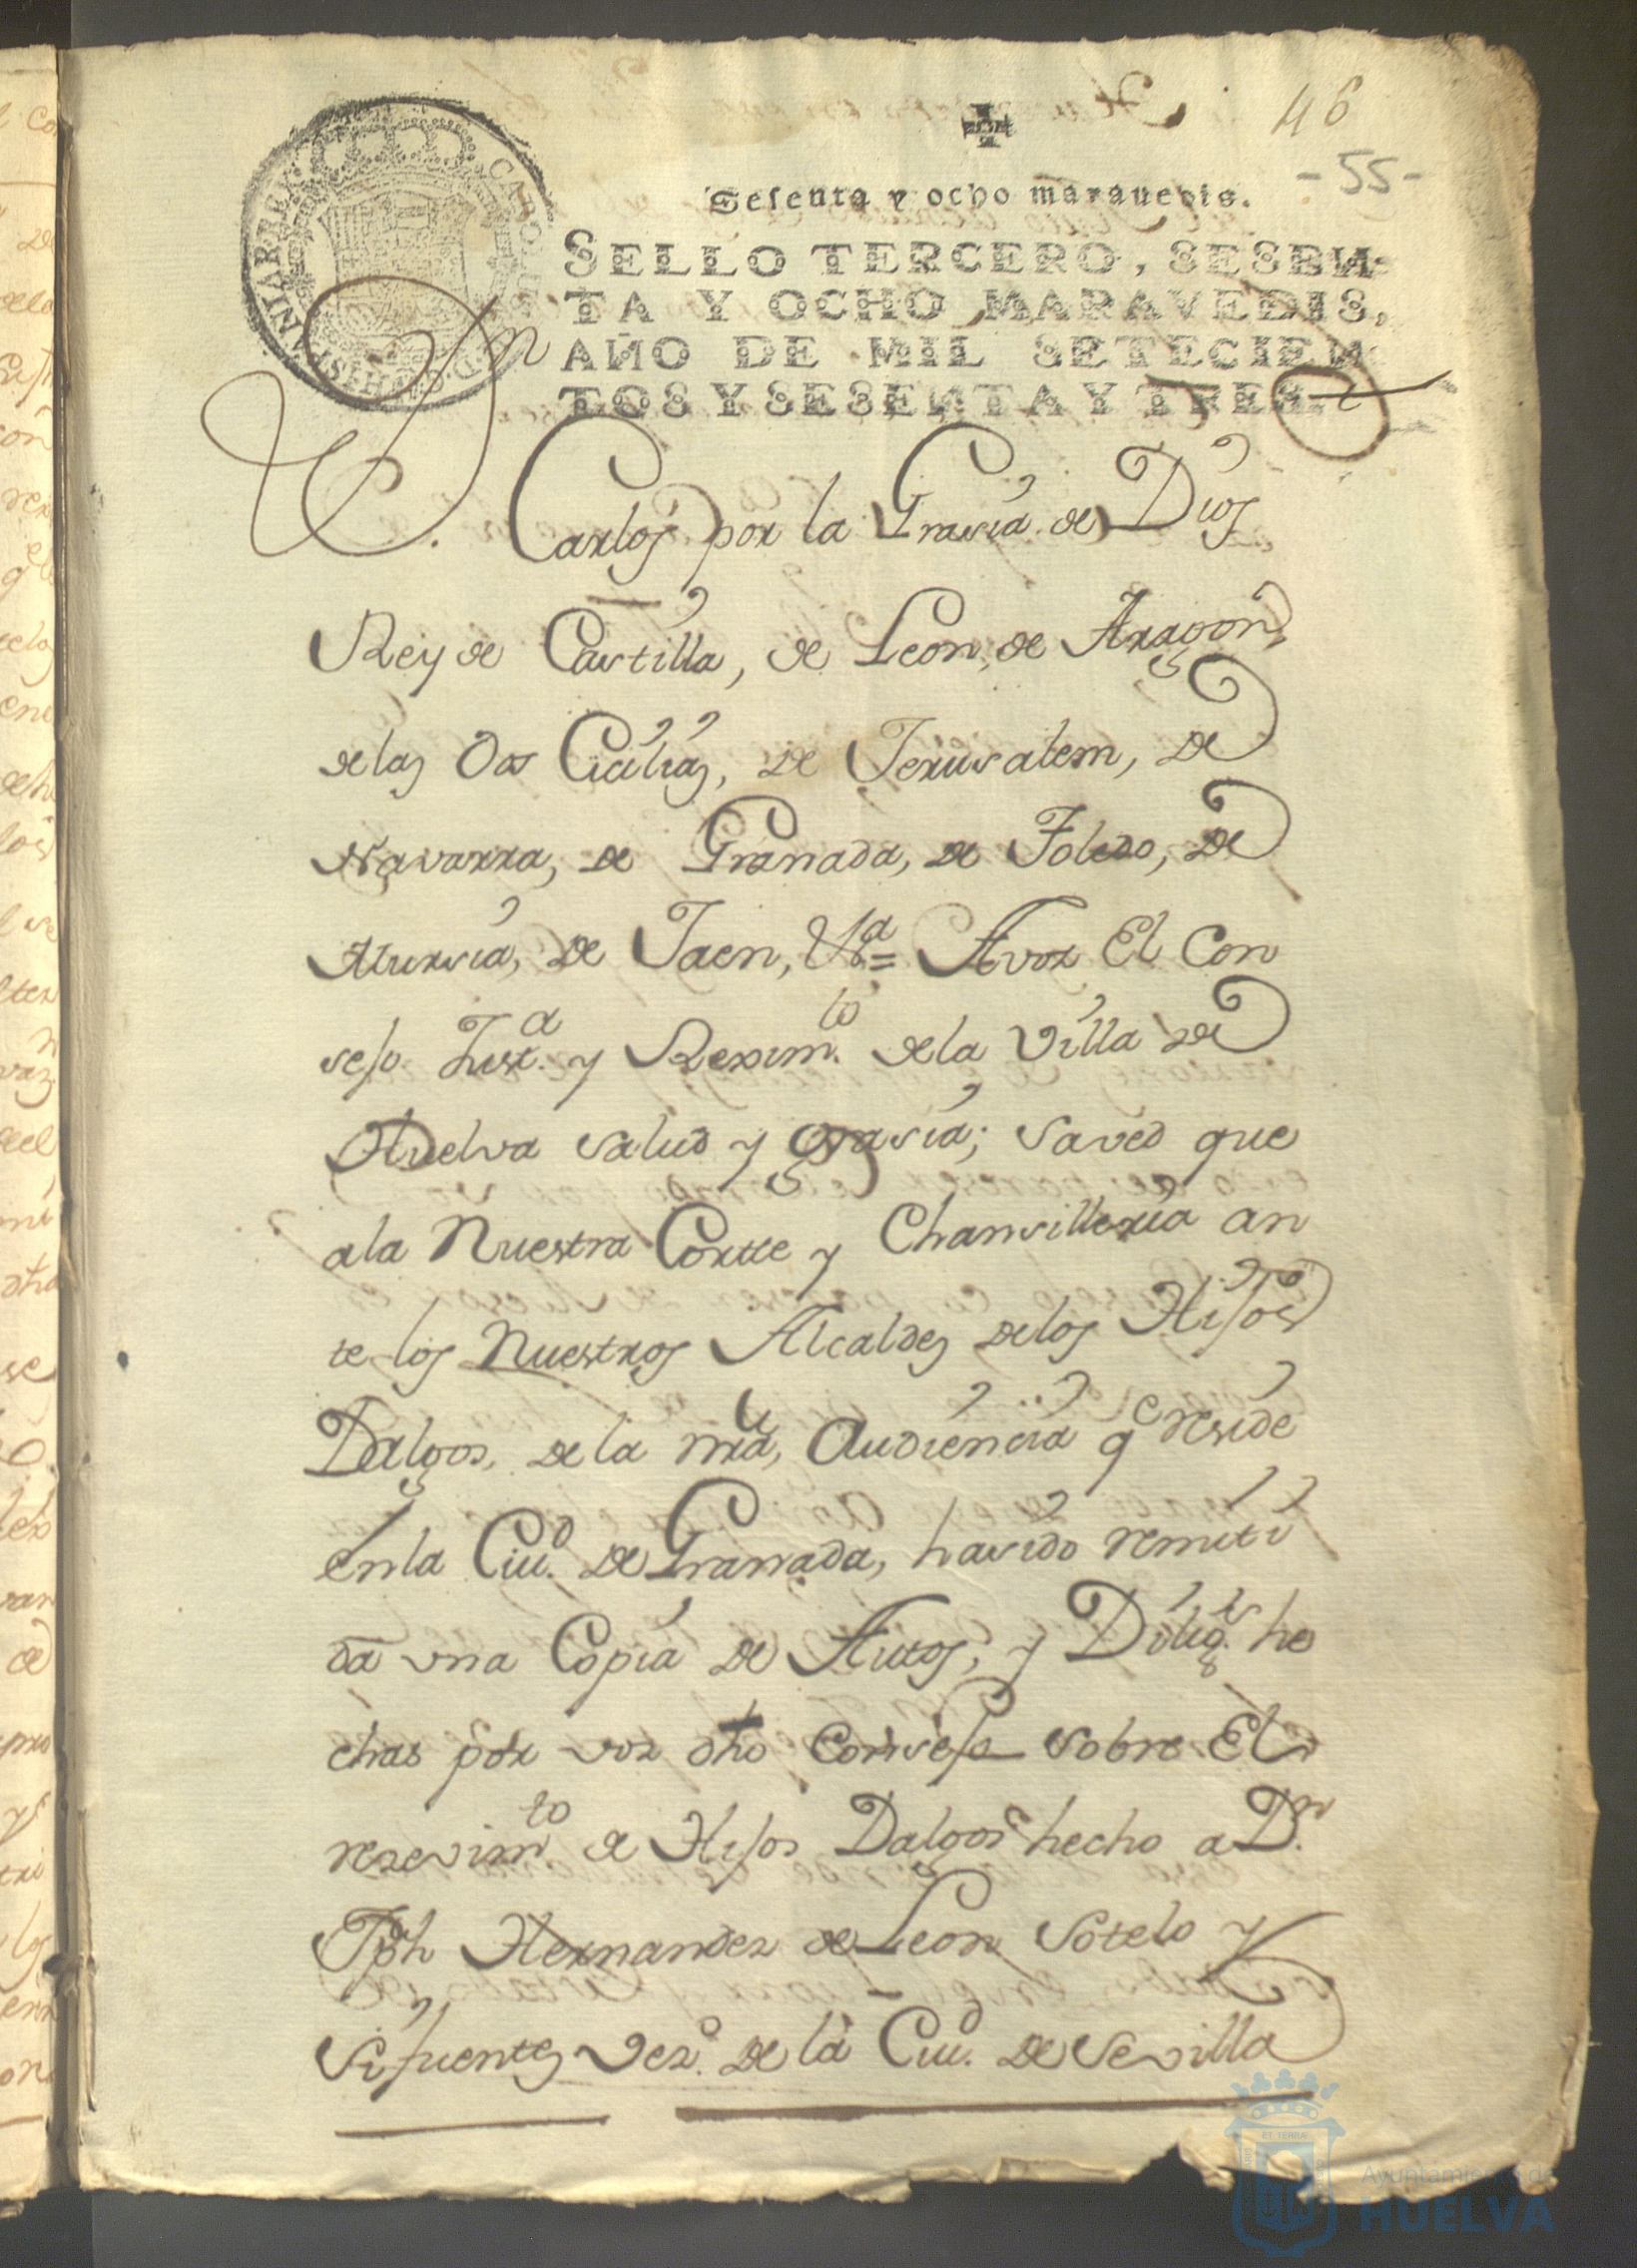 46
- 55 -
Sesenta y ocho maravedis.
SELLO TERCERO, SESEN-
TA Y OCHO MARAVEDIS,
AÑO DE MIL SETECIEN
TOS Y SESENTA Y TRES.
CAROLUS III D. G. HISPANIAR REX
Dn. Carlos por la Grasia de Dios
Rey de Castilla, de Leon, de Aragon,
delas Dos Cicilias, de Jerusalem, de
Navarra, de Granada, de Toledo, de
Mursia, de Jaen, &a = A vos El Con
sejo Just.a y Rexim.to dela Villa de
Huelva salud y grasia; saved que
ala Nuestra Cortte y Chansilleria an
te los Nuestros Alcaldes delos Hijos
Dalgos, dela nra, Audiencia qe reside
enla Ciu.d de Granada, hasido remiti
da una Copia de Autos, y Dilig.s he
chas por vos dho Consejo sobre El
resevim.to de Hijos Dalgos hecho a Dn.
Jph Hernandez de Leon Sotelo y
Sifuentes vez.o de la Ciu.d de Sevilla
Ayuntamiento de
HUELVA